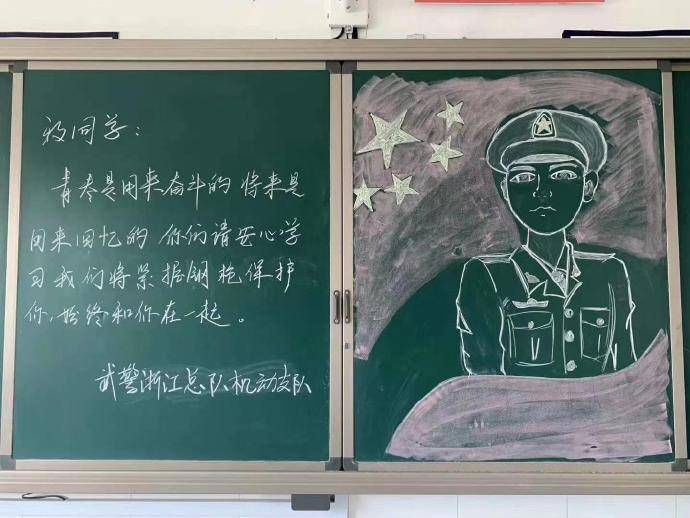 致同学：
青春是用来奋斗的 将来是
用来回忆的 你们请安心学
习我们将紧握钢枪保护
你，始终和你在一起。
武警浙江总队机动支队